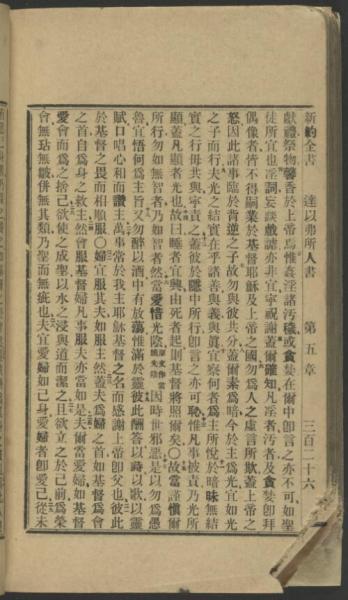 新約全書　達以弗所人書　第五章　三百二十六
獻禮祭物馨香於上帝焉惟姦淫諸汚穢或貪婪在爾中卽言之亦不可如聖
徒所宜也淫詞妄談戲謔亦非宜寧祝謝蓋爾確知凡淫者汚者及貪婪卽拜
偶像者皆不得嗣業於基督耶穌及上帝之國勿爲人之虛言所欺蓋上帝之
怒因此諸事臨於背逆之子故勿與彼共分蓋爾素爲暗今於主爲光宜如光
之子而行夫光之結實在乎諸善與義與眞宜察何者爲主所悅於暗昧無結
實之行毋共與寧責之蓋彼於隱中所行卽言之亦可恥惟凡事被責乃光所
顯蓋凡顯者光也故曰睡者宜興由死者起則基督將照爾矣○故當謹愼爾
所行勿如無智者乃如智者然當愛惜光陰因時世邪惡是以勿爲愚
魯宜悟何爲主旨又勿醉以酒中有放蕩惟滿於靈彼此酬答以詩以歌以靈
賦口唱心和而讚主萬事常於我主耶穌基督之名而感謝上帝卽父也彼此
於基督之畏而相順服○婦宜服其夫如服主然蓋夫爲婦之首如基督爲會
之首自爲身之救主然會服基督婦凡事服夫亦當如是夫爾當愛婦如基督
愛會而爲之捨己欲使之成聖以水之浸與道而潔之且欲立之於己前爲榮
會無玷無皺併無其類乃聖而無疵也夫宜愛婦如己身愛婦者卽愛己從未